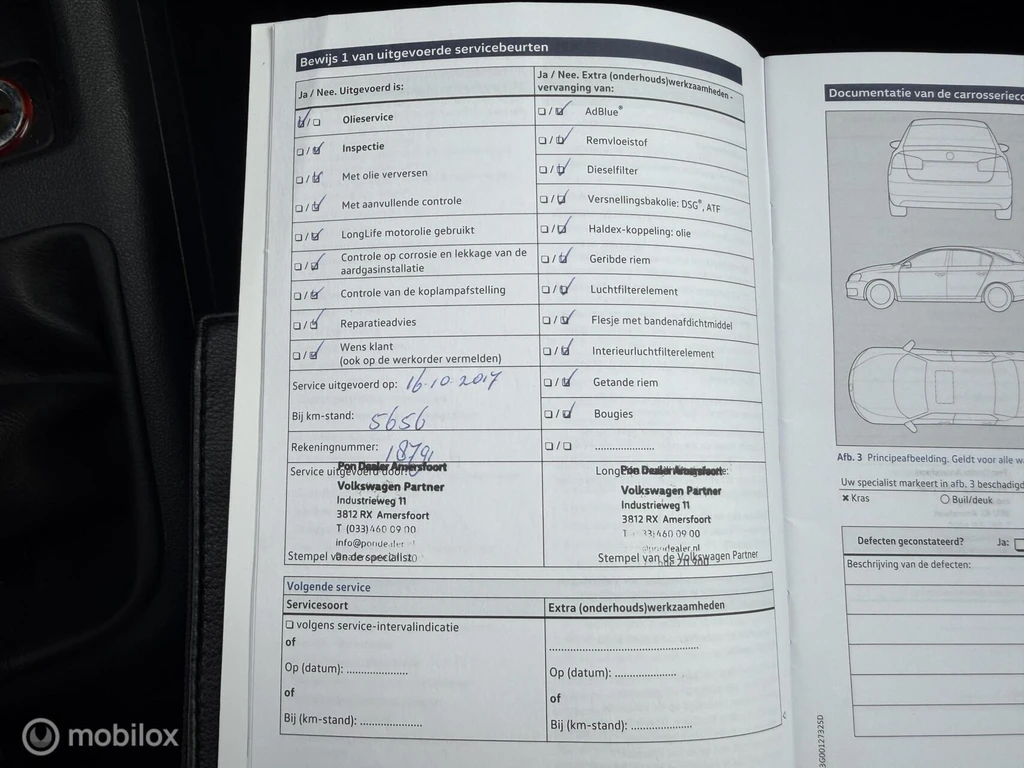 Bewijs 1 van uitgevoerde servicebeurten
Ja / Nee. Uitgevoerd is:
☑/☐ Olieservice
☐/☑ Inspectie
☐/☑ Met olie verversen
☐/☑ Met aanvullende controle
☐/☑ LongLife motorolie gebruikt
☐/☑ Controle op corrosie en lekkage van de
aardgasinstallatie
☐/☑ Controle van de koplampafstelling
☐/☑ Reparatieadvies
☐/☑ Wens klant
(ook op de werkorder vermelden)
Service uitgevoerd op: 16-10-2017
Bij km-stand: 5656
Rekeningnummer: 18791
Service uitgevoerd door:
Pon Dealer Amersfoort
Volkswagen Partner
Industrieweg 11
3812 RX Amersfoort
T (033) 460 09 00
info@pondealer.nl
Stempel van de specialist
Ja / Nee. Extra (onderhouds)werkzaamheden -
vervanging van:
☐/☑ AdBlue®
☐/☑ Remvloeistof
☐/☑ Dieselfilter
☐/☑ Versnellingsbakolie: DSG®, ATF
☐/☑ Haldex-koppeling: olie
☐/☑ Geribde riem
☐/☑ Luchtfilterelement
☐/☑ Flesje met bandenafdichtmiddel
☐/☑ Interieurluchtfilterelement
☐/☑ Getande riem
☐/☑ Bougies
☐/☐ ......................
Pon Dealer Amersfoort
Volkswagen Partner
Industrieweg 11
3812 RX Amersfoort
T 33) 460 09 00
pondealer.nl
Stempel van de Volkswagen Partner
Volgende service
Servicesoort
☐ volgens service-intervalindicatie
of
Op (datum): ......................
of
Bij (km-stand): ......................
Extra (onderhouds)werkzaamheden
......................
Op (datum): ......................
of
Bij (km-stand): ......................
Documentatie van de carrosserieco
Afb. 3 Principeafbeelding. Geldt voor alle
Uw specialist markeert in afb. 3 beschadigd
× Kras ○ Buil/deuk
Defecten geconstateerd? Ja: ☐
Beschrijving van de defecten:
3G0012732SD
mobilox